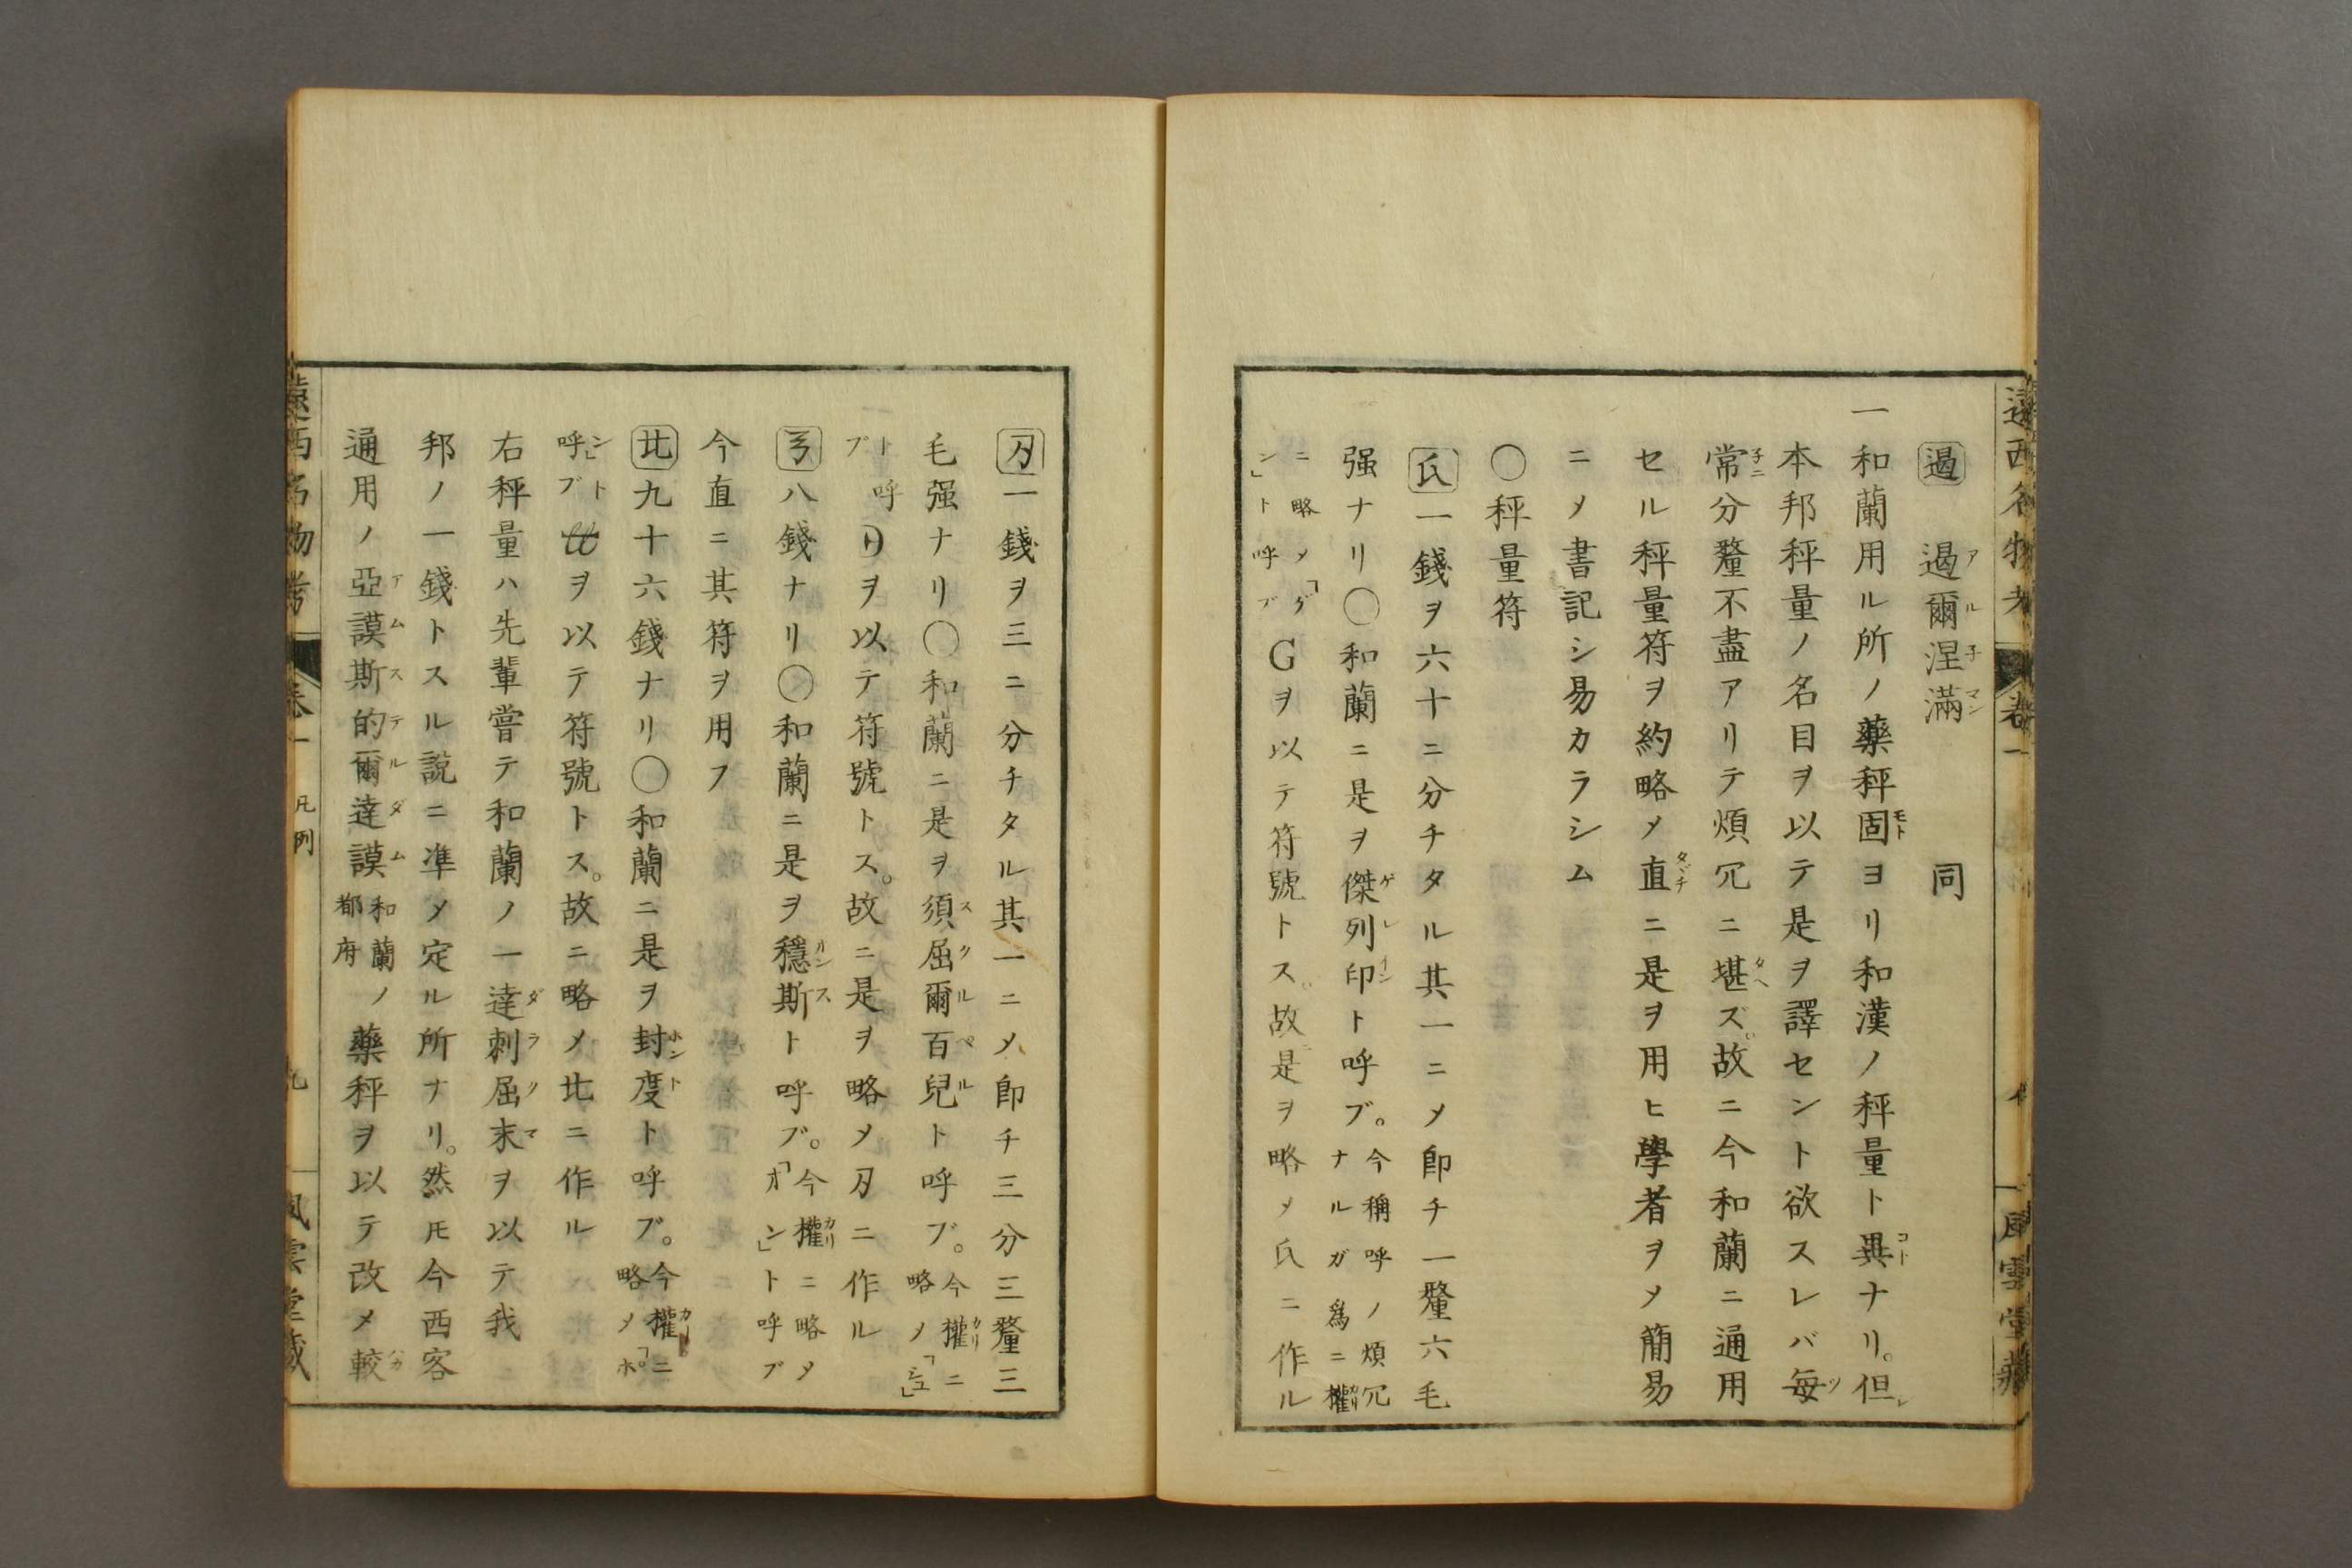 遏 遏爾涅滿 同
一和蘭用ル所ノ藥秤固ヨリ和漢ノ秤量ト異ナリ。但
本邦秤量ノ名目ヲ以テ是ヲ譯セント欲スレバ毎
常分釐不盡アリテ煩冗ニ堪ズ。故ニ今和蘭ニ通用
セル秤量符ヲ約略メ直ニ是ヲ用ヒ學者ヲメ簡易
ニメ書記シ易カラシム
〇秤量符
氏一錢ヲ六十ニ分チタル其一ニメ卽チ一釐六毛
强ナリ〇和蘭ニ是ヲ傑列印ト呼ブ。今稱呼ノ煩冗ナルガ爲ニ權
ニ略メ「ゲン」ト呼ブGヲ以テ符號トス故是ヲ略メ氏ニ作ル
刄一錢ヲ三ニ分チタル其一ニメ卽チ三分三釐三
毛强ナリ〇和蘭ニ是ヲ須屈爾百兒ト呼ブ。今權ニ略メ「シユ」
ト呼ブ ヲ以テ符號トス。故ニ是ヲ略メ刄ニ作ル
㐧八錢ナリ〇和蘭ニ是ヲ穩斯ト呼ブ。今權ニ略メ「オン」ト呼ブ
今直ニ其符ヲ用フ
比九十六錢ナリ〇和蘭ニ是ヲ封度ト呼ブ。今權ニ略メ「ホ
ン」ト呼ブ ヲ以テ符號トス。故ニ略メ比ニ作ル
右秤量ハ先輩嘗テ和蘭ノ一達刺屈末ヲ以テ我
邦ノ一錢トスル説ニ凖メ定ル所ナリ。然𪜈今西客
通用ノ亞謨斯的爾達謨和蘭都府ノ藥秤ヲ以テ改メ較
遠西名物考 卷一 凡例 九 風雲堂藏